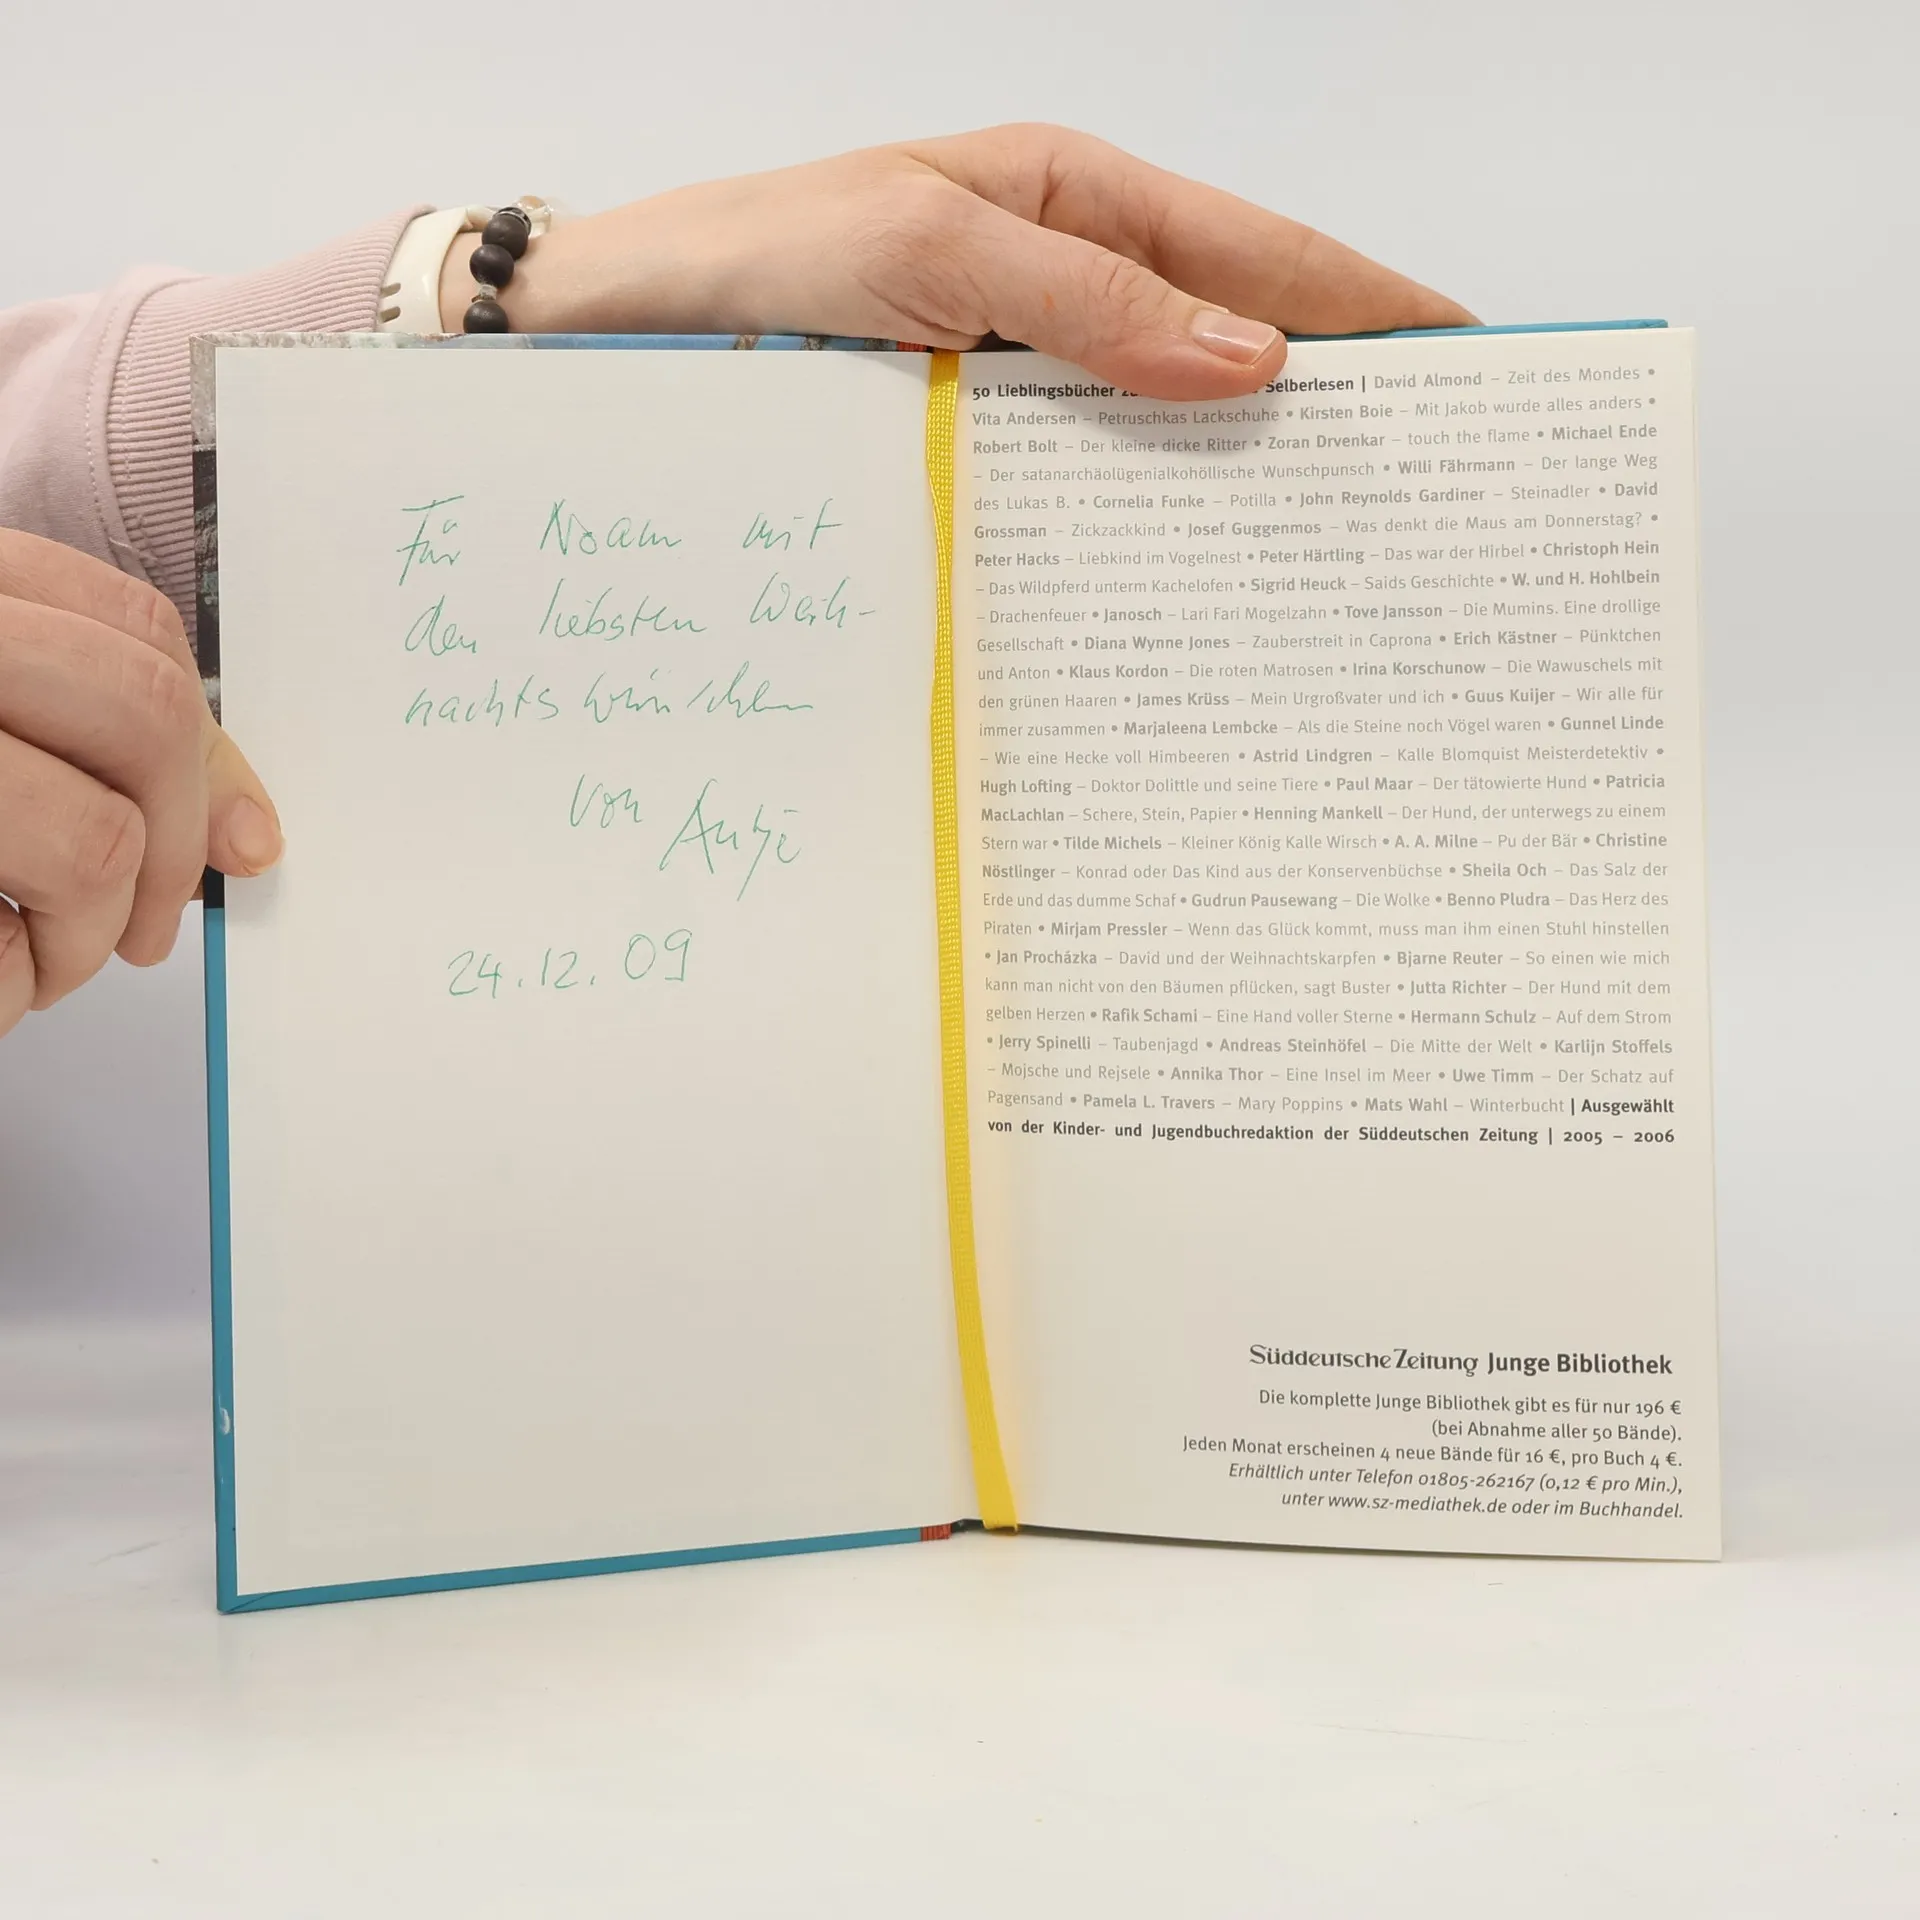 Für Noam mit
den liebsten Weih-
nachtswünschen
von Antje
24.12.09
50 Lieblingsbücher Selberlesen | David Almond – Zeit des Mondes •
Vita Andersen – Petruschkas Lackschuhe • Kirsten Boie – Mit Jakob wurde alles anders •
Robert Bolt – Der kleine dicke Ritter • Zoran Drvenkar – touch the flame • Michael Ende
– Der satanarchäolügenialkohöllische Wunschpunsch • Willi Fährmann – Der lange Weg
des Lukas B. • Cornelia Funke – Potilla • John Reynolds Gardiner – Steinadler • David
Grossman – Zickzackkind • Josef Guggenmos – Was denkt die Maus am Donnerstag? •
Peter Hacks – Liebkind im Vogelnest • Peter Härtling – Das war der Hirbel • Christoph Hein
– Das Wildpferd unterm Kachelofen • Sigrid Heuck – Saids Geschichte • W. und H. Hohlbein
– Drachenfeuer • Janosch – Lari Fari Mogelzahn • Tove Jansson – Die Mumins. Eine drollige
Gesellschaft • Diana Wynne Jones – Zauberstreit in Caprona • Erich Kästner – Pünktchen
und Anton • Klaus Kordon – Die roten Matrosen • Irina Korschunow – Die Wawuschels mit
den grünen Haaren • James Krüss – Mein Urgroßvater und ich • Guus Kuijer – Wir alle für
immer zusammen • Marjaleena Lembcke – Als die Steine noch Vögel waren • Gunnel Linde
– Wie eine Hecke voll Himbeeren • Astrid Lindgren – Kalle Blomquist Meisterdetektiv •
Hugh Lofting – Doktor Dolittle und seine Tiere • Paul Maar – Der tätowierte Hund • Patricia
MacLachlan – Schere, Stein, Papier • Henning Mankell – Der Hund, der unterwegs zu einem
Stern war • Tilde Michels – Kleiner König Kalle Wirsch • A. A. Milne – Pu der Bär • Christine
Nöstlinger – Konrad oder Das Kind aus der Konservenbüchse • Sheila Och – Das Salz der
Erde und das dumme Schaf • Gudrun Pausewang – Die Wolke • Benno Pludra – Das Herz des
Piraten • Mirjam Pressler – Wenn das Glück kommt, muss man ihm einen Stuhl hinstellen
• Jan Procházka – David und der Weihnachtskarpfen • Bjarne Reuter – So einen wie mich
kann man nicht von den Bäumen pflücken, sagt Buster • Jutta Richter – Der Hund mit dem
gelben Herzen • Rafik Schami – Eine Hand voller Sterne • Hermann Schulz – Auf dem Strom
• Jerry Spinelli – Taubenjagd • Andreas Steinhöfel – Die Mitte der Welt • Karlijn Stoffels
– Mojsche und Rejsele • Annika Thor – Eine Insel im Meer • Uwe Timm – Der Schatz auf
Pagensand • Pamela L. Travers – Mary Poppins • Mats Wahl – Winterbucht | Ausgewählt
von der Kinder- und Jugendbuchredaktion der Süddeutschen Zeitung | 2005 – 2006
Süddeutsche Zeitung Junge Bibliothek
Die komplette Junge Bibliothek gibt es für nur 196 €
(bei Abnahme aller 50 Bände).
Jeden Monat erscheinen 4 neue Bände für 16 €, pro Buch 4 €.
Erhältlich unter Telefon 01805-262167 (0,12 € pro Min.),
unter www.sz-mediathek.de oder im Buchhandel.